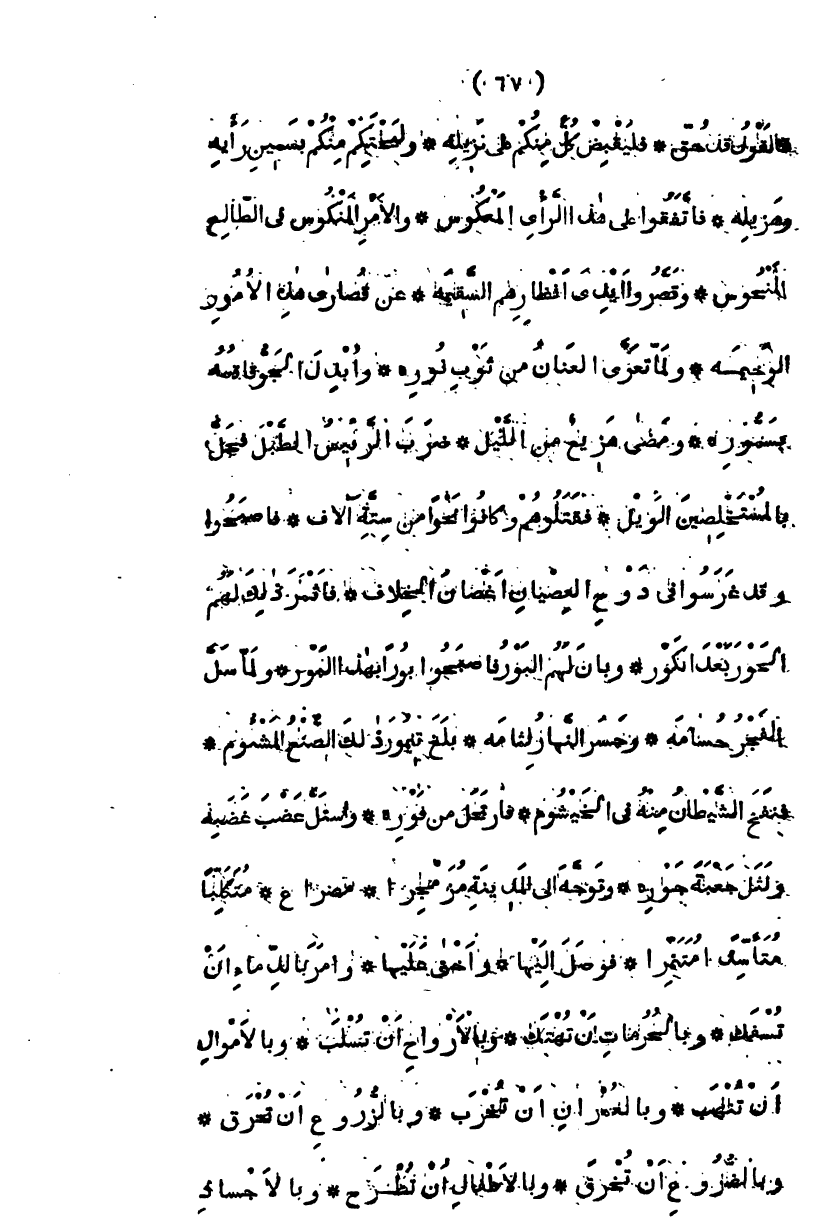 (٦٧)
فالقَوْلُ قد حُقّ * فليَقْبِضْ كُلٌّ مِنكُمْ على نَزِيلِهِ * وليَحْتَكِمْ مِنْكُمْ بسَمِينِ رَأيهِ
وهَزِيلِه * فاتَّفَقُوا على هٰذا الرَّأْىِ المَعْكُوس * والاَمْرِ المَنْكُوس فى الطّالِعِ
المَنْحُوس * وقَصُرُوا اَيْدِىَ اَنْظارِهِم السَّقِيمَه * عن قُصارىٰ هٰذِه الاُمُورِ
الوَخِيمَه * ولَمّا تعَرَّى العَنانُ من ثَوْبِ نُورِه * واُبْدِلَ الجَوُّ
ومَضٰى هَزِيعٌ من اللَّيْل * ضرَبَ الرَّئِيسُ الطَّبْلَ فحَلَّ
بالمُسْتَخْلِصِينَ الوَيْل * فقَتَلُوهُمْ وكانُوا نَحْوًا من سِتّةِ آلاف * فاصبَحُوا
وقد غَرَسُوا فى دَوْحِ العِصْيانِ اَغْصانَ الخِلاف * فاَثْمَرَ ذٰلِكَ لَهُم
الحَوْرَ بَعْدَ الكَوْر * وبانَ لَهُم البَوْرُ فاصبَحُوا بُورًا بهٰذا النَّوْر * ولَمّا سَلَّ
الفَجْرُ حُسامَه * وحَسَر النَّهارُ لِثامَه * بلَغَ تيمورَ ذٰلكَ الصُّنْعُ المَشْئُوم *
فنَفَخَ الشَّيْطانُ مِنهُ فى الخَيْشُوم * فارتَحَلَ من فَوْرِه * واستَلَّ عَضْبَ غَضَبِه
ونَثَلَ جَعْبَةَ جَوْرِه * وتَوَجَّهَ الى المَدِينَةِ مُزَمْجِرا * مُتَكَلِّبًا
مُتَأَسِّدًا مُتَنَمِّرا * فوصَلَ اِلَيْها * واَخْنٰى عَلَيْها * واَمَرَ بالدِّماءِ اَنْ
تُسْفَك * وبالحُرُماتِ اَنْ تُهْتَك * وبالاَرْواحِ اَنْ تُسْلَب * وبالاَمْوالِ
اَنْ تُنْهَب * وبالعُمْرانِ اَنْ تُخْرَب * وبالزُّرُوعِ اَنْ تُحْرَق *
وبالضُّرُوعِ اَنْ تُخْرَق * وبالاَطْفالِ اَنْ تُطْرَح * وبالاَجْسادِ